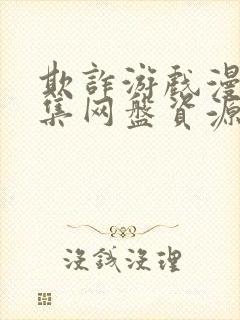 欺詐游戲漫
集网盤資源
沒錢沒理